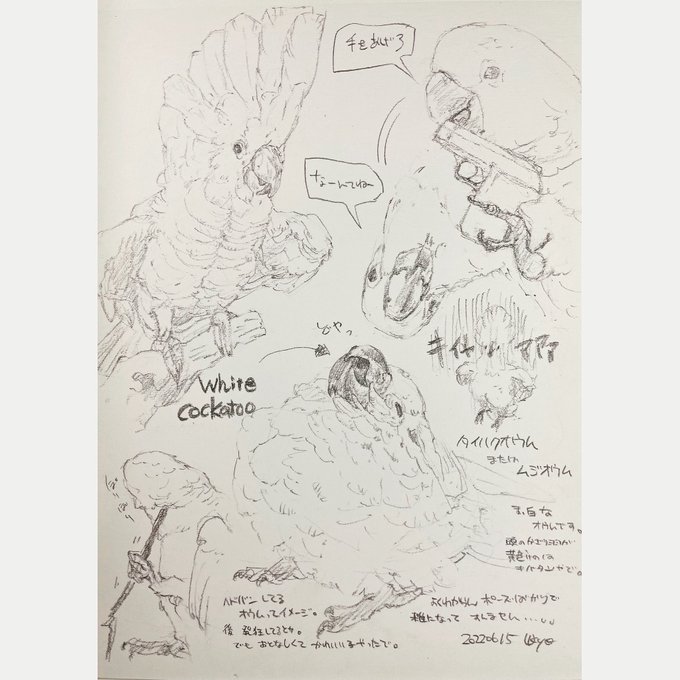 手をあげろ
なーんてねー
どやっ
White
cockatoo
キィャァァ アアア
タイハクオウム
または
ムジオウム
まっ白な
オウムです。
頭のかざり羽が
黄色いのは
キバタンやで。
ヘドバンしてる
オウムってイメージ。
後 発狂してるとか。
でも おとなしくて かわいい子やったで。
よくわからん ポーズばかりで
雑になって すいません……。
20220615